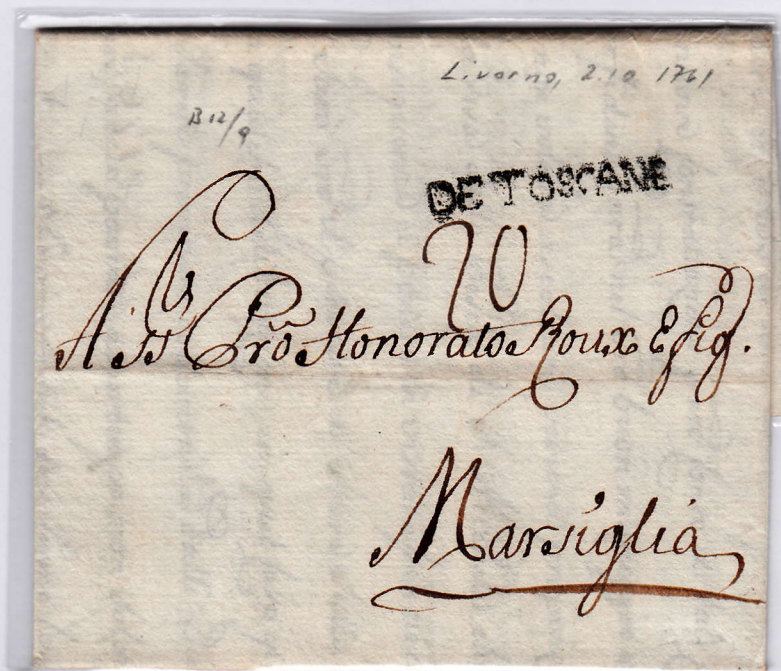 Livorno, 2.10 1761
B12/9
DE TOSCANE
20
A' SS.ri Prõ Honorato Roux E fig.
Marsiglia